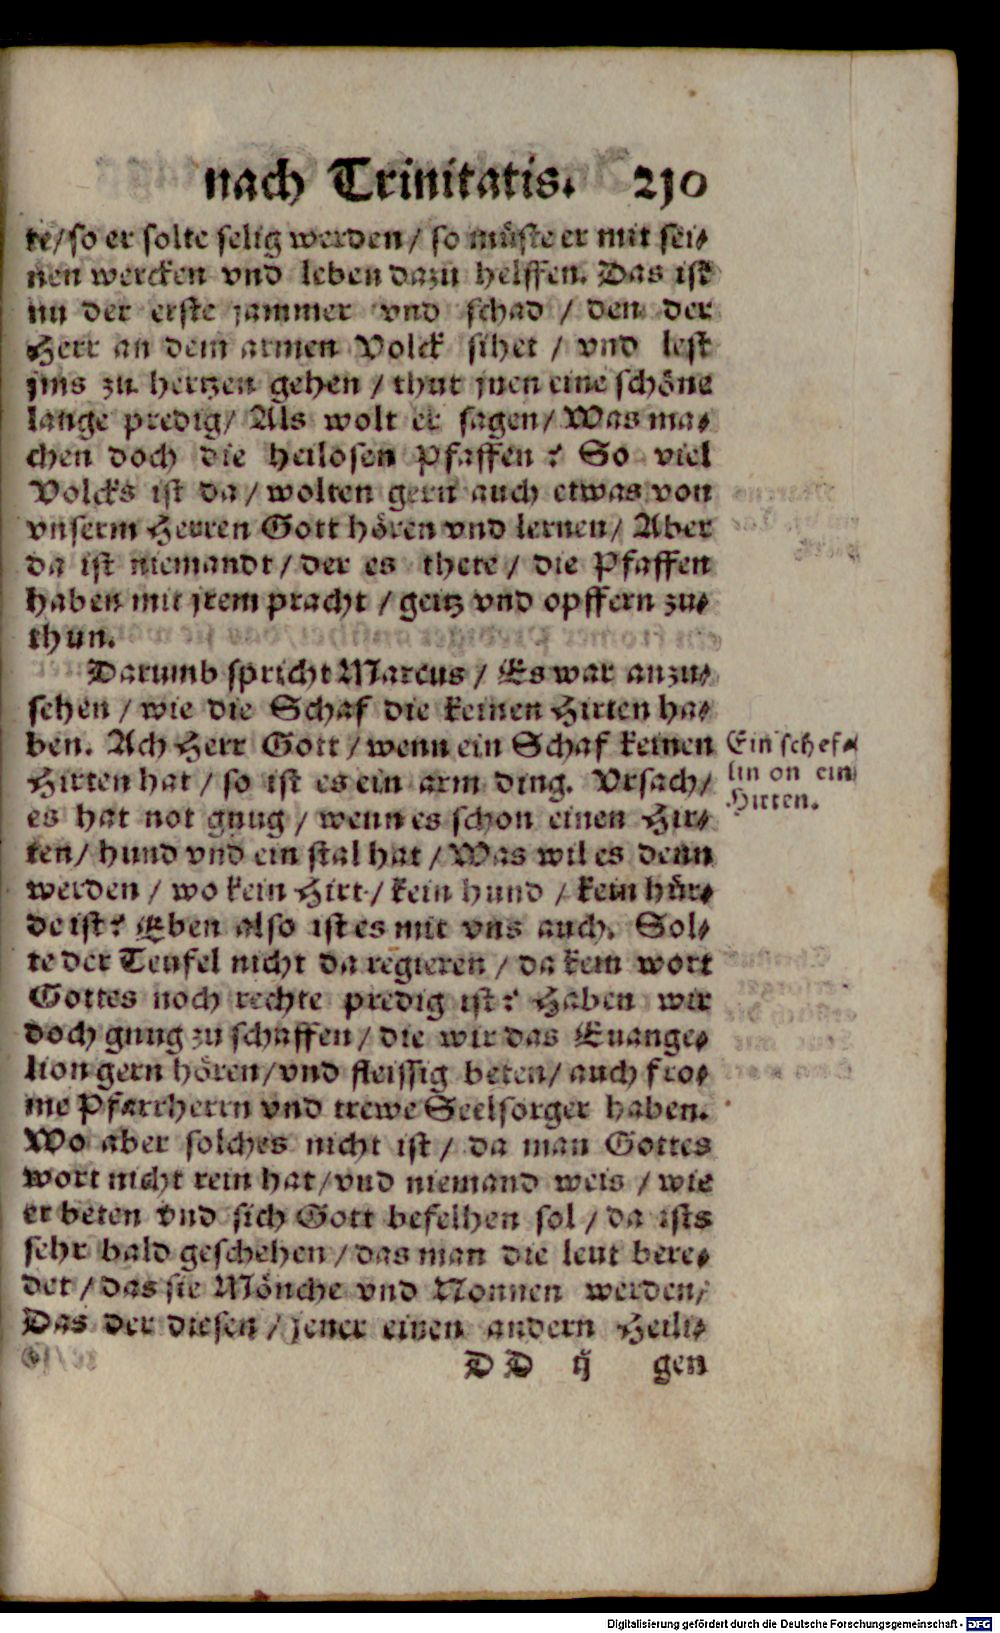 nach Trinitatis. 210
te/ so er solte selig werden/ so müste er mit sei-
nen wercken vnd leben dazu helffen. Das ist
nu der erste jammer vnd schad / den der
Herr an dem armen Volck sihet / vnd lest
jms zu hertzen gehen / thut jnen eine schöne
lange predig/ Als wolt er sagen/ Was ma-
chen doch die heilosen Pfaffen? So viel
Volcks ist da/ wolten gern auch etwas von
vnserm Herren Gott hören vnd lernen/ Aber
da ist niemandt/ der es thete/ die Pfaffen
haben mit jrem pracht / geitz vnd opffern zu-
thun.
Darumb spricht Marcus / Es war anzu-
sehen / wie die Schaf die keinen Hirten ha-
ben. Ach Herr Gott/ wenn ein Schaf keinen
Hirten hat / so ist es ein arm ding. Vrsach/
es hat not gnug / wenn es schon einen Hir-
ten/ hund vnd ein stal hat / Was wil es denn
werden / wo kein Hirt/ kein hund / kein hür-
de ist? Eben also ist es mit vns auch. Sol-
te der Teufel nicht da regieren / da kein wort
Gottes noch rechte predig ist? Haben wir
doch gnug zu schaffen/ die wir das Euange-
lion gern hören/ vnd fleissig beten/ auch fro-
me Pfarrherrn vnd trewe Seelsorger haben.
Wo aber solches nicht ist / da man Gottes
wort nicht rein hat/ vnd niemand weis / wie
er beten vnd sich Gott befelhen sol / da ists
sehr bald geschehen / das man die leut bere-
det / das sie Mönche vnd Nonnen werden/
Das der diesen / jener einen andern Heili-
DD ij gen
Ein schef-
lin on ein
Hirten.
Digitalisierung gefördert durch die Deutsche Forschungsgemeinschaft - DFG